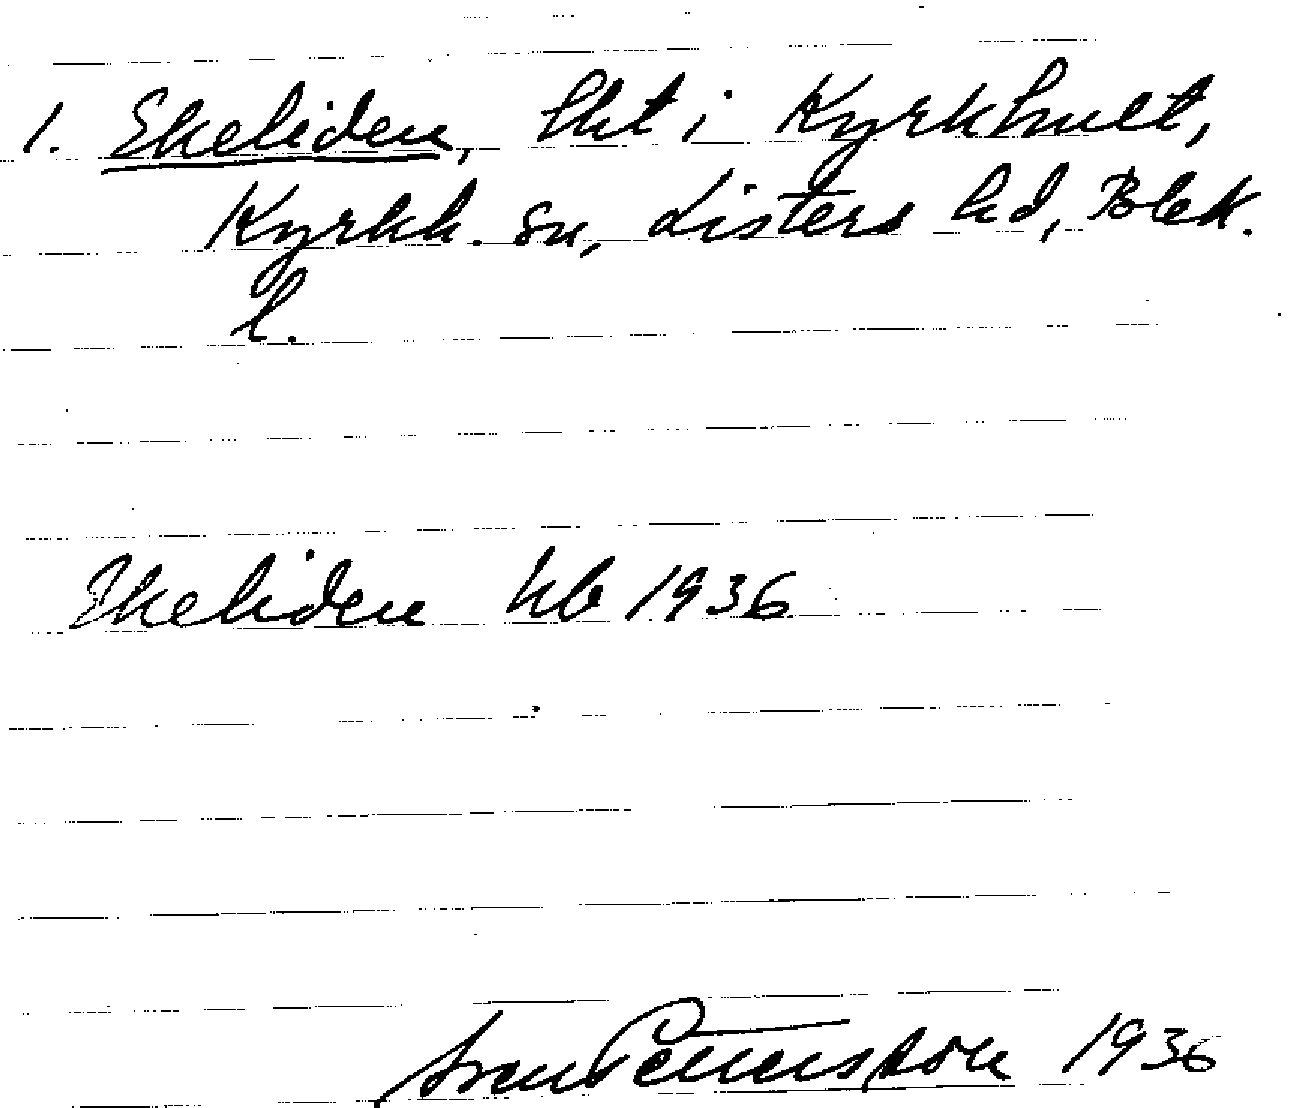 1. Ekeliden, lht i Kyrkhult,
Kyrkh. sn, Listers hd, Blek.
l.
Ekeliden kb 1936
Sven Pettersson 1936